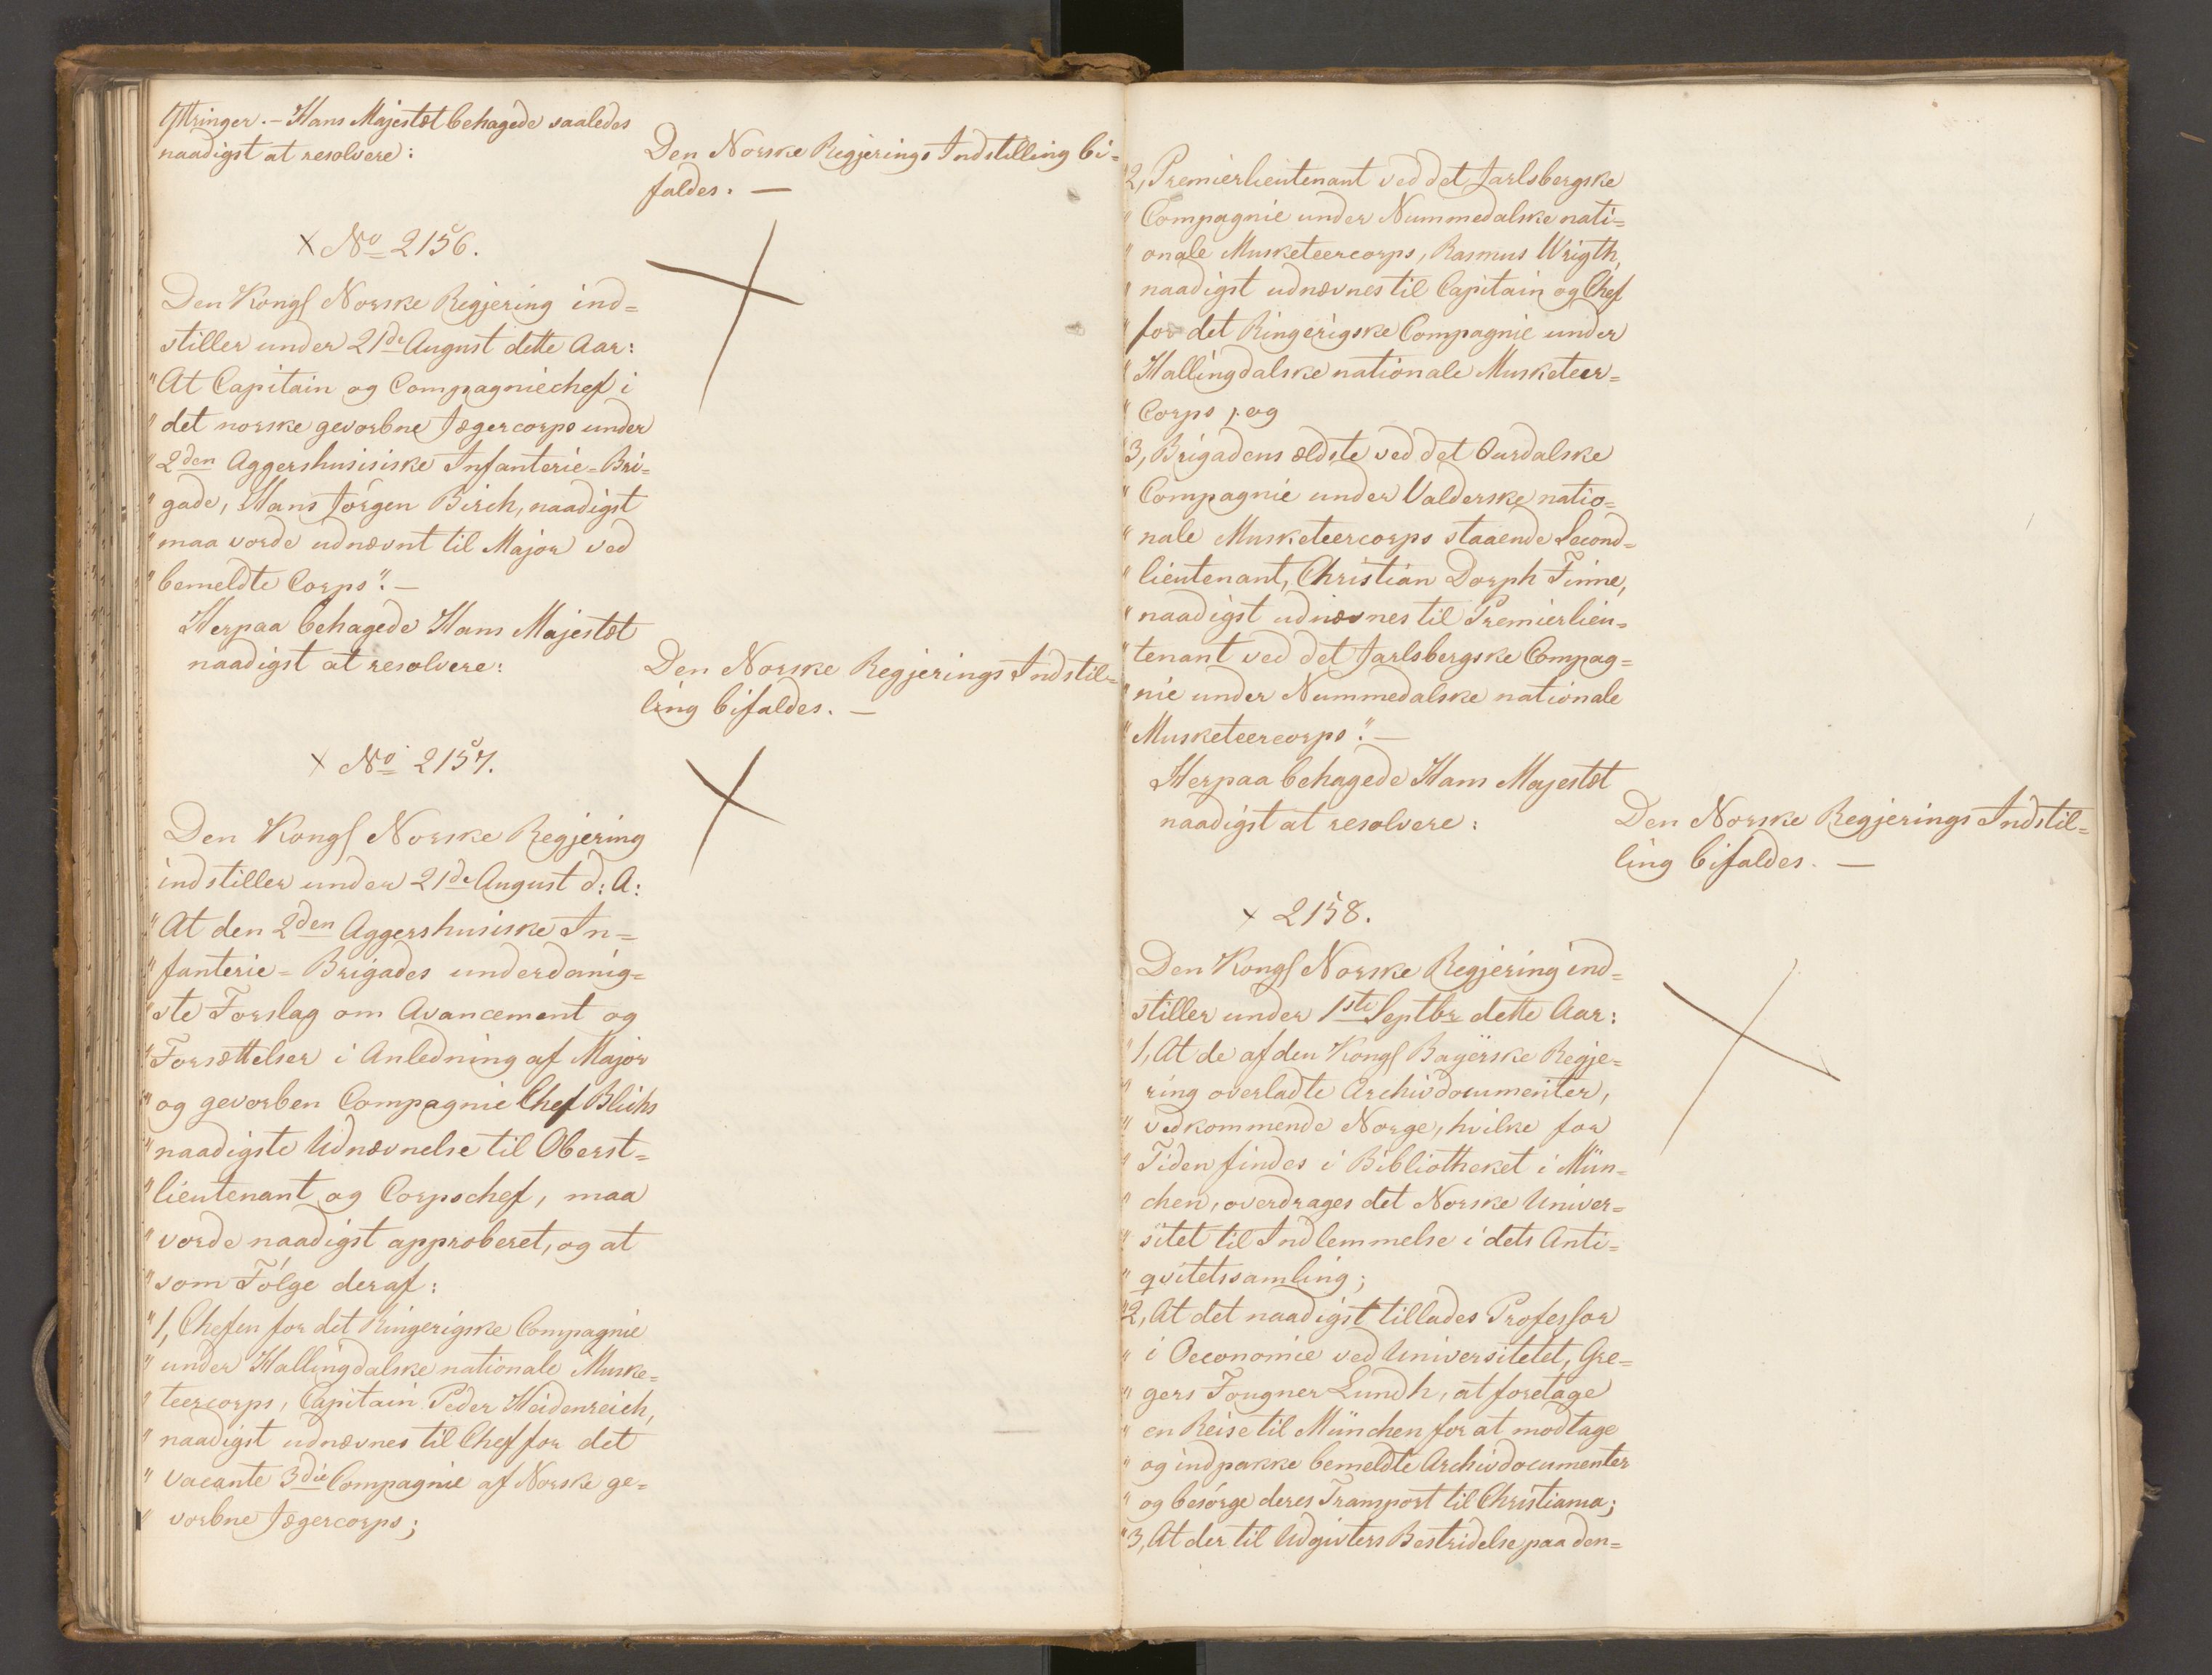 Yttringer. — Hans Majestæt behagede saaledes
naadigst at resolvere:
Den Norske Regjerings Indstilling bi=
faldes. —
× No 2156.
Den Kongl Norske Regjering ind=
stiller under 21de August dette Aar:
"At Capitain og Compagniechef i
"det norske gevorbne Jægercorps under
"2den Aggershusisiske Infanterie=Bri=
"gade, Hans Jørgen Birch, naadigst
"maa vorde udnævnt til Major ved
"bemeldte Corps". —
Herpaa behagede Hans Majestæt
naadigst at resolvere:
Den Norske Regjerings Indstil=
ling bifaldes. —
× No 2157.
Den Kongl Norske Regjering
indstiller under 21de August d: A:
"At den 2den Aggershusiske In=
"fanterie=Brigades underdanig=
"ste Forslag om Avancement og
"Forsættelser i Anledning af Major
"og gevorben Compagnie Chef Blichs
"naadigste Udnævnelse til Oberst=
"lieutenant og Corpschef, maa
"vorde naadigst approberet, og at
"som Følge deraf:
"1, Chefen for det Ringerigske Compagnie
"under Hallingdalske nationale Muske=
"teercorps, Capitain Peder Heidenreich,
"naadigst udnævnes til Chef for det
"vacante 3die Compagnie af Norske ge=
"vorbne Jægercorps;
2, Premierlieutenant ved det Jarlsbergske
"Compagnie under Nummedalske nati=
"onale Musketeercorps, Rasmus Wrigth,
"naadigst udnævnes til Capitain og Chef
"for det Ringerigske Compagnie under
"Hallingdalske nationale Musketeer=
"Corps; og
3, Brigadens ældste ved det Aurdalske
"Compagnie under Valderske natio=
"nale Musketeercorps staaende Second=
"lieutenant, Christian Dorph Finne,
"naadigst udnævnes til Premierlieu=
"tenant ved det Jarlsbergske Compag=
"nie under Nummedalske nationale
"Musketeercorps". —
Herpaa behagede Hans Majestæt
naadigst at resolvere:
Den Norske Regjerings Indstil=
ling bifaldes. —
× 2158.
Den Kongl Norske Regjering ind=
stiller under 1ste Septbr dette Aar:
"1, At de af den Kongl Bayerske Regje=
"ring overladte Archivdocumenter,
"vedkommende Norge, hvilke for
"Tiden findes i Bibliotheket i Mün=
"chen, overdrages det Norske Univer=
"sitet til Indlemmelse i dets Anti=
"qvitetssamling;
"2, At det naadigst tillades Professor
"i Oeconomie ved Universitetet, Gre=
"gers Fougner Lundh, at foretage
"en Reise til München for at modtage
"og indpakke bemeldte Archivdocumenter
"og besørge deres Transport til Christiania;
"3, At der til Udgivters Bestridelse paa den=